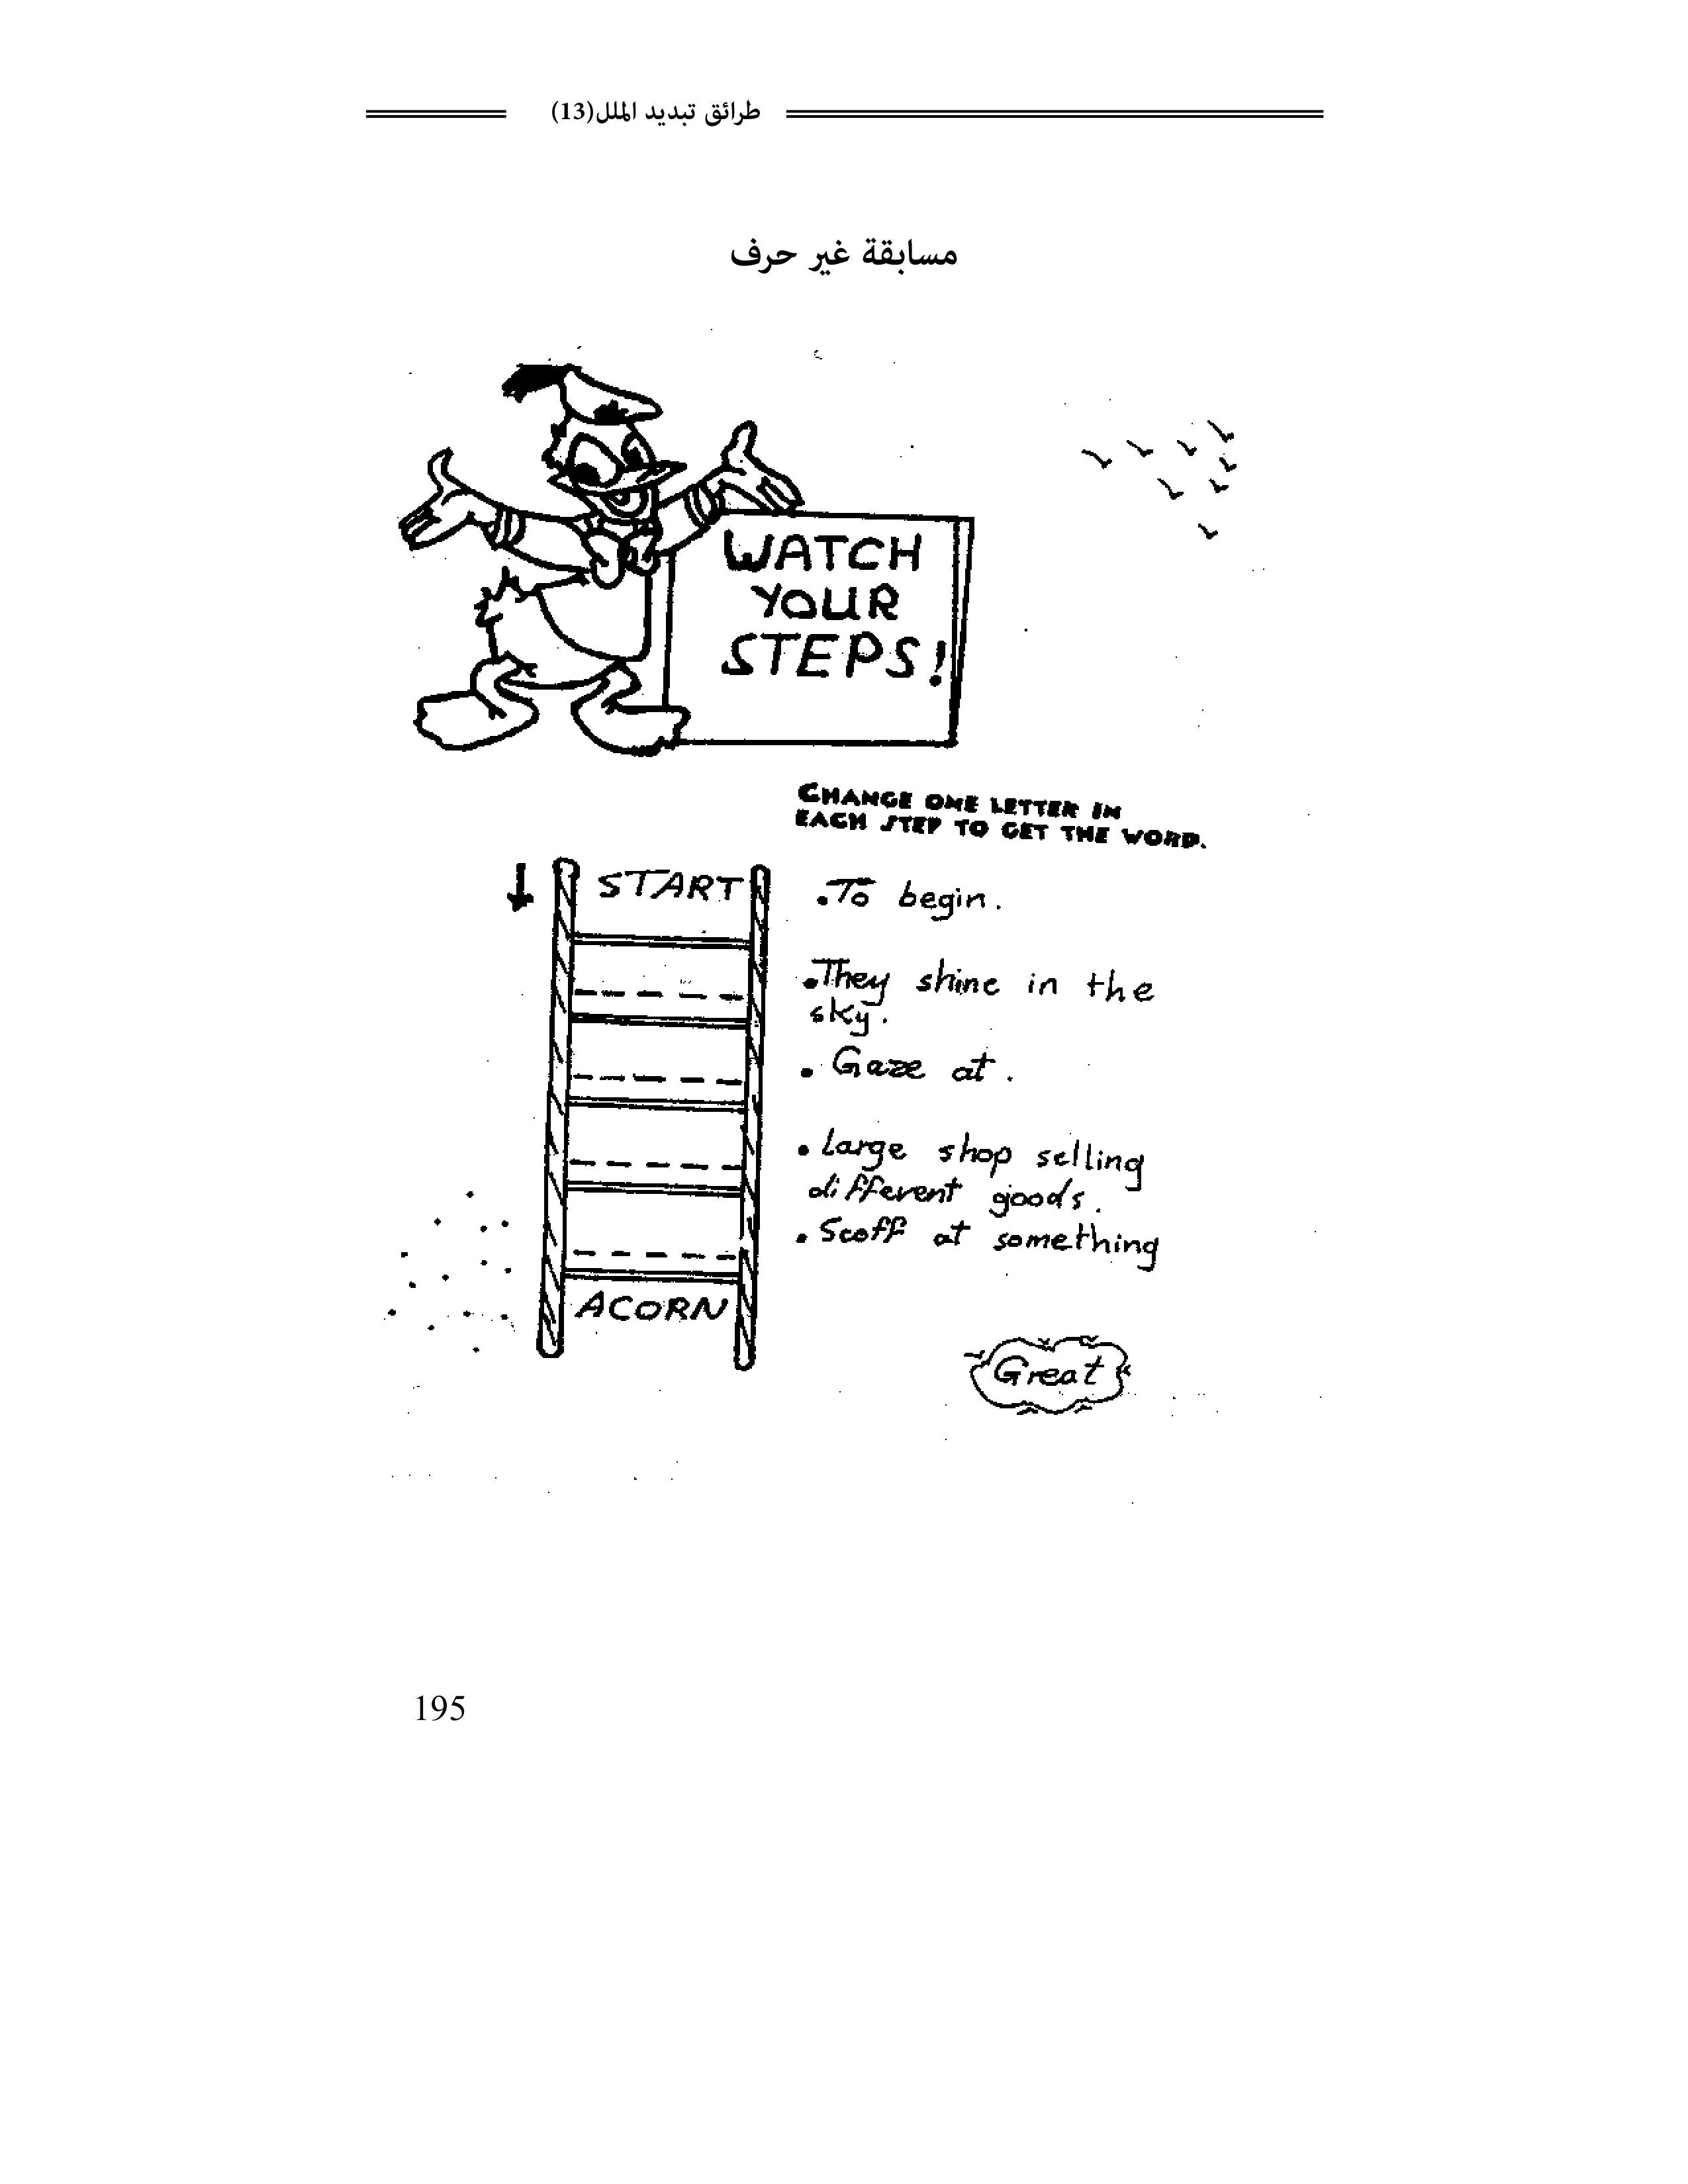 طرائق تبديد الملل(13)
مسابقة غير حرف
WATCH
YOUR
STEPS!
CHANGE ONE LETTER IN
EACH STEP TO GET THE WORD.
START
.To begin.
.They shine in the
sky.
. Gaze at.
. Large shop selling
different goods.
. Scoff at something
ACORN
Great
195